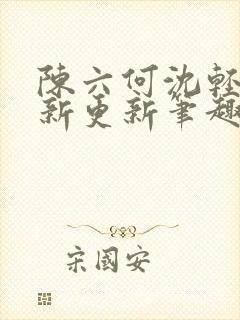 陳六何沈輕
新更新筆趣
宋國安